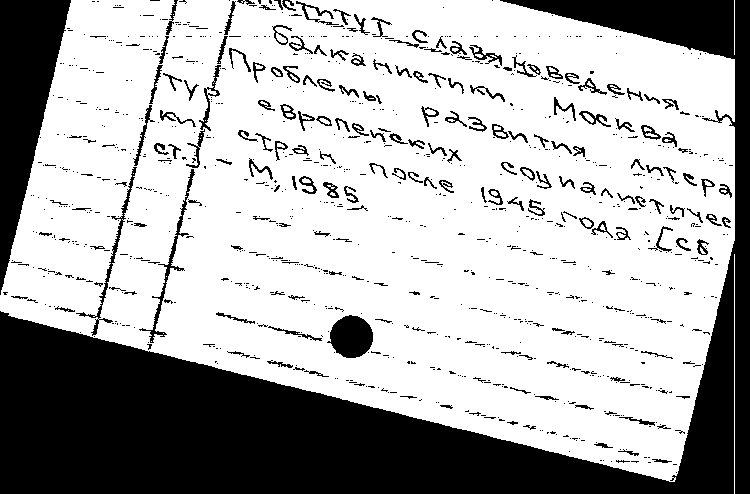 Институт славяноведения и
балканистики. Москва
Проблемы развития литера
тур европейских социалистичес
ких стран после 1945 года : [сб.
ст.]. – М, 1985.